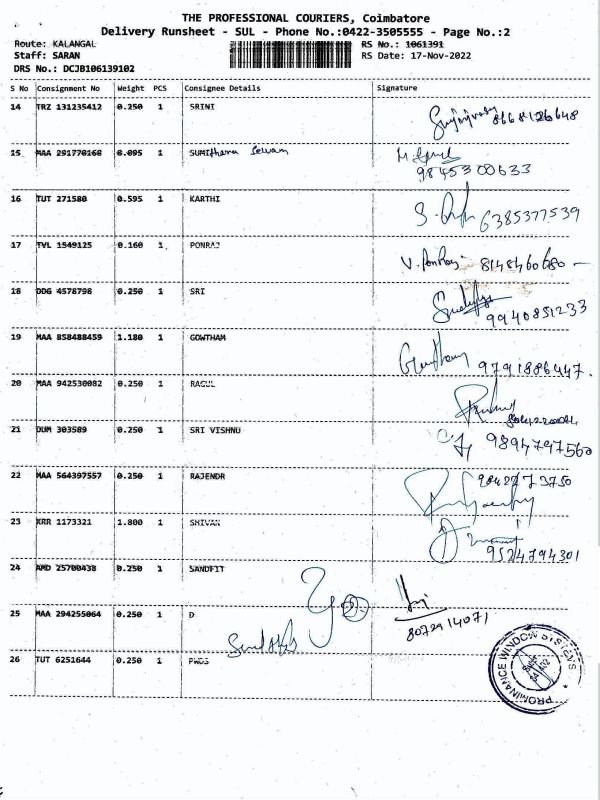 THE PROFESSIONAL COURIERS, Coimbatore
Delivery Runsheet - SUL - Phone No.:0422-3505555 - Page No.:2
Route: KALANGAL RS No.: 1061391
Staff: SARAN RS Date: 17-Nov-2022
DRS No.: DCJB106139102
S No Consignment No Weight PCS Consignee Details Signature
14 TRZ 131235412 0.250 1 SRINI
15 MAA 291770168 0.095 1 SUMIthara Selvam
9845300633
16 TUT 271580 0.595 1 KARTHI
6385377539
17 TVL 1549125 0.160 1 PONRAJ V. Ponraj 8148460680
18 DDG 4578798 0.250 1 SRI
9940851233
19 MAA 858488459 1.180 1 GOWTHAM
Gowtham 9791886447.
20 MAA 942530082 0.250 1 RAGUL
21 DUM 303589 0.250 1 SRI VISHNU
9894797560
22 MAA 564397557 0.250 1 RAJENDR 9842773750
23 KRR 1173321 1.800 1 SHIVAN
9524794301
24 AMD 25700438 0.250 1 SANDFIT
25 MAA 294255064 0.250 1 D
8072914071
26 TUT 6251644 0.250 1 PWDS
PROMINANCE WINDOW SYSTEMS